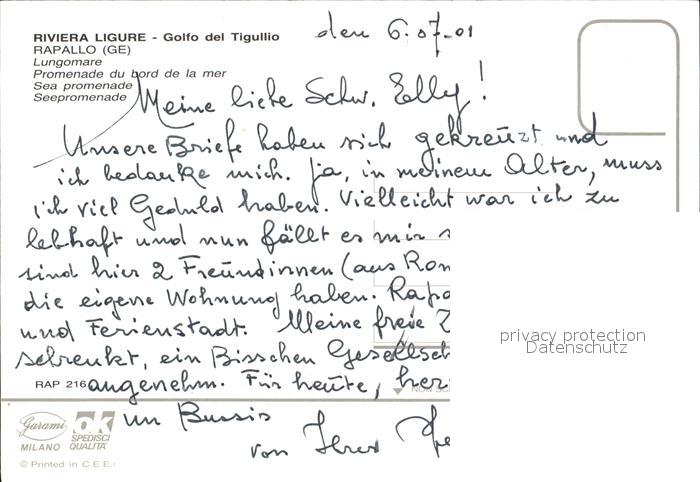 RIVIERA LIGURE - Golfo del Tigullio
RAPALLO (GE)
Lungomare
Promenade du bord de la mer
Sea promenade
Seepromenade
den 6.07-01
Meine liebe Schw. Elly!
Unsere Briefe haben sich gekreuzt und
ich bedanke mich. Ja, in meinem Alter, muss
ich viel Geduld haben. Vielleicht war ich zu
lebhaft und nun fällt es mir s
sind hier 2 Freundinnen (aus Rom
die eigene Wohnung haben. Rapa
und Ferienstadt. Meine freie Z
schrenkt, ein Bisschen Gesellsch
RAP 216 angenehm. Für heute, her
un Bussis
von Ihrer
privacy protection
Datenschutz
Garami
MILANO
ok
SPEDISCI
QUALITA'
© Printed in C.E.E.